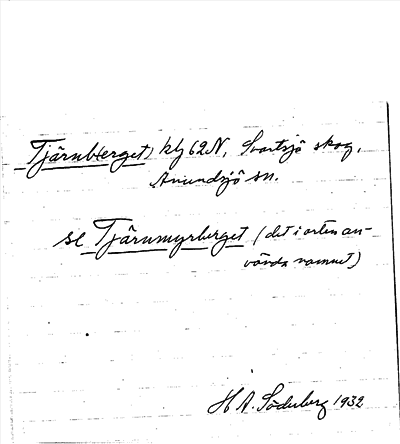 Tjärnb(erget) klj 62N, Svartsjö skog,
Anundsjö sn.
se Tjärnmyrberget (det i orten an-
vända namnet)
H A. Söderberg 1932